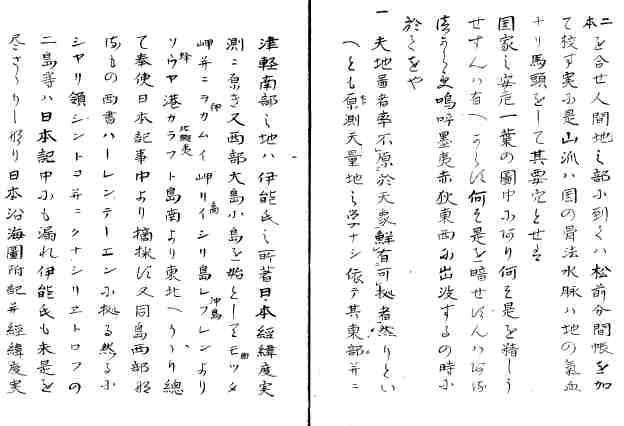 二本を合せ人間地之部に到くハ松前分間帳を加
て校す実に是山派ハ国の骨法水脉ハ地の氣血
ナリ馬頭をして其要究とせる
国家之安危一葉の圖中にあり何そ是を精しう
せすんハ有へからす何そ是を暗せすんハ
鳴呼墨夷赤狄東西に出没するの時に
於てをや
一 夫地圖者率不原於天象鮮有可拠者然りとい
へとも原測天量地之学ナシ依テ其東部并ニ
津軽南部之地ハ伊能氏之所著日本経緯度実
測ニ原き又西部大島小島を始としてモツタ
岬并ニヲカムイ岬リイシリ島レフンシリより
ソウヤ港カラフト島南より東北へ 総
て奉使日本記事中より摘採す又同島西部
ハーレンテーエンに拠る然るに
シヤリ領シレトコ并ニクナシリヱトロフの
二島等ハ日本記中にも漏れ伊能氏も未是を
尽さゝりし 日本沿海圖附記并経緯度実